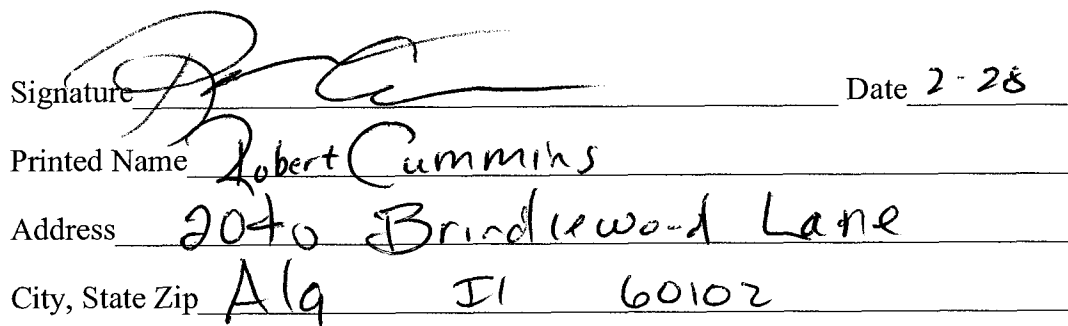 Signature Date 2-28
Printed Name Robert Cummins
Address 2040 Brindlewood Lane
City, State Zip Alg Il 60102